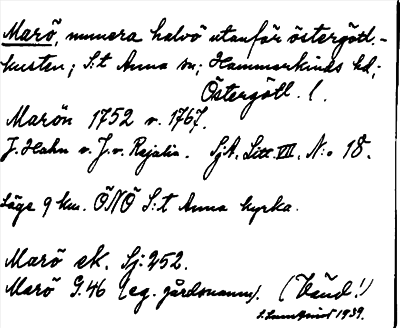 Marö, numera halvö utanför östergötl.-
kusten; S:t Anna sn; Hammarkinds hd;
Östergötl. l.
Marön 1752 o. 1767.
J. Hahn o. J. v. Rajalin. SjA. Litt. VII. N:o 18.
Läge 9 km. ÖNÖ S:t Anna kyrka.
Marö ek. Sj: 252.
Marö G.46 (eg. gårdsnamn). (Vänd!)
1939.